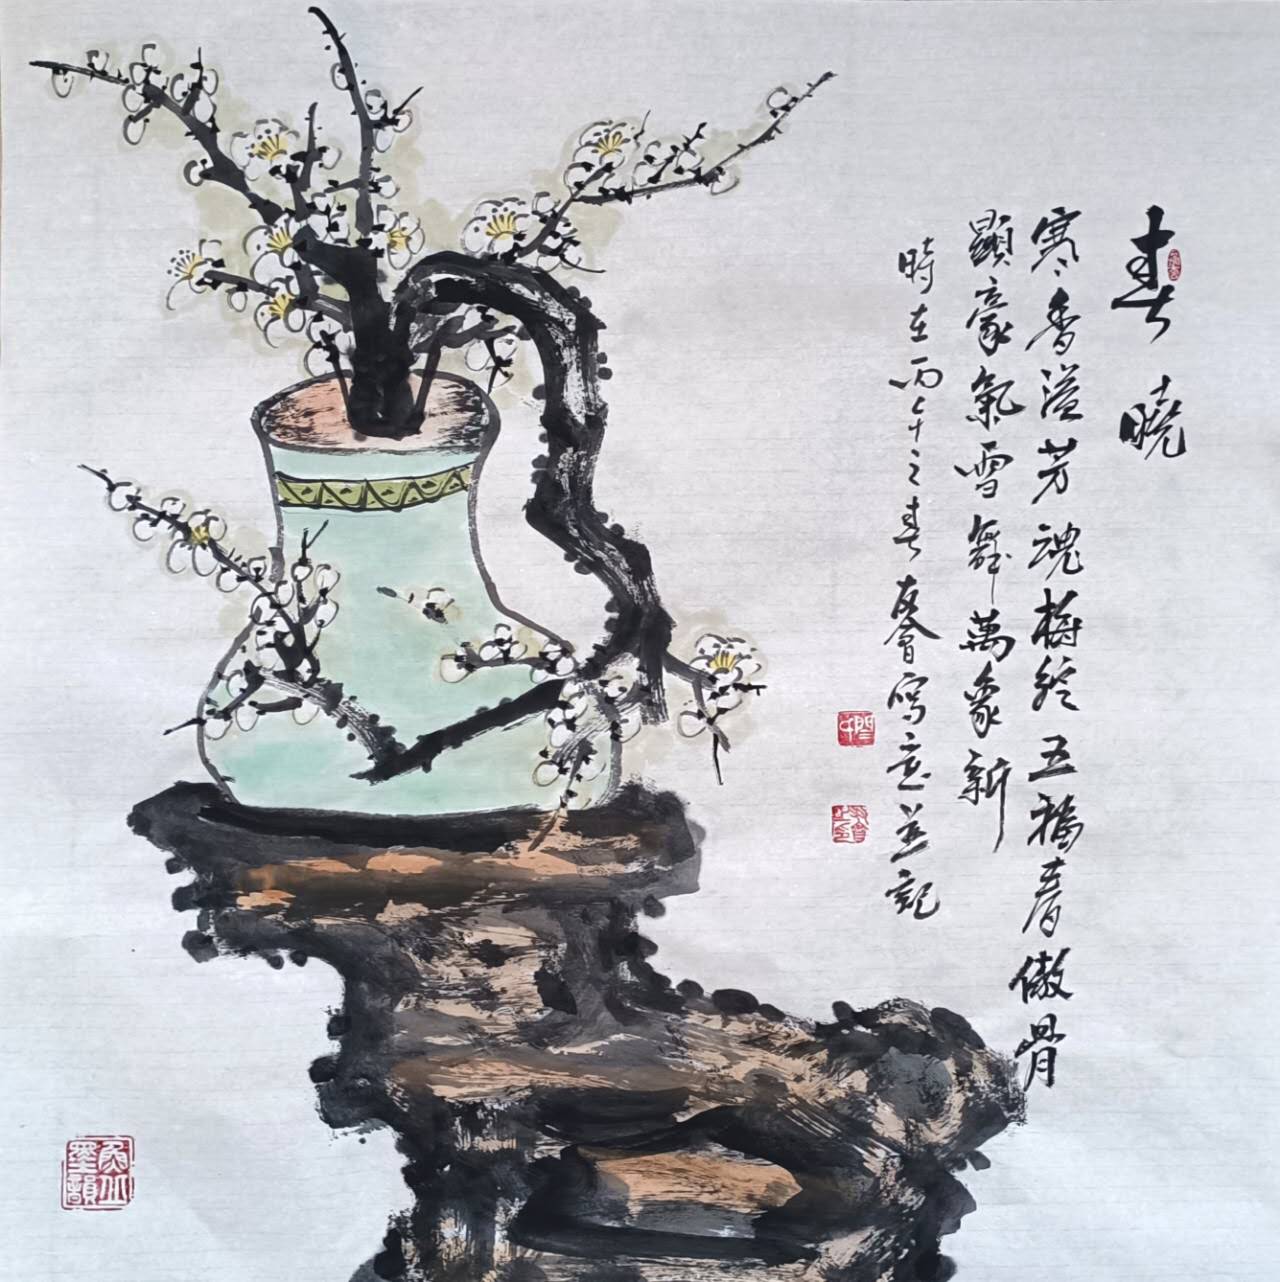 春曉
寒香溢芳魂梅綻五福春傲骨
顯豪氣雪舞萬象新
時在丙午之春友會寫意並記